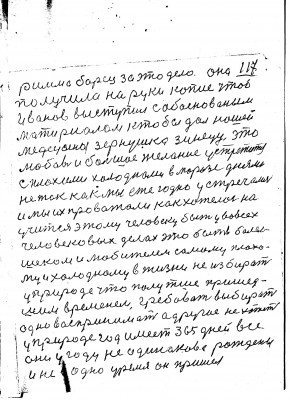 117
римма борец за это дело. она
получила на руки копие чтоб
Иванов выступил с обоснованым
материалом кто бы дал нашей
зернушка за нецу это
любовь и большое желание устретить
с плохими холодными в морозе днями
не так как мы ежегодно устречаем
и мы их провожали как хотелось на
учится этому человеку быть у всех
человековых делах это быть бале
щеком и любителем самому плохо-
му и холодному в жизни не избират
у природе что получше прищед-
шим временем, требоват выбират
одно воспринимат а другие не хотет
у природе год имеет 365 дней все
они у году не одинакова рождены
и не у одно уремя он пришел